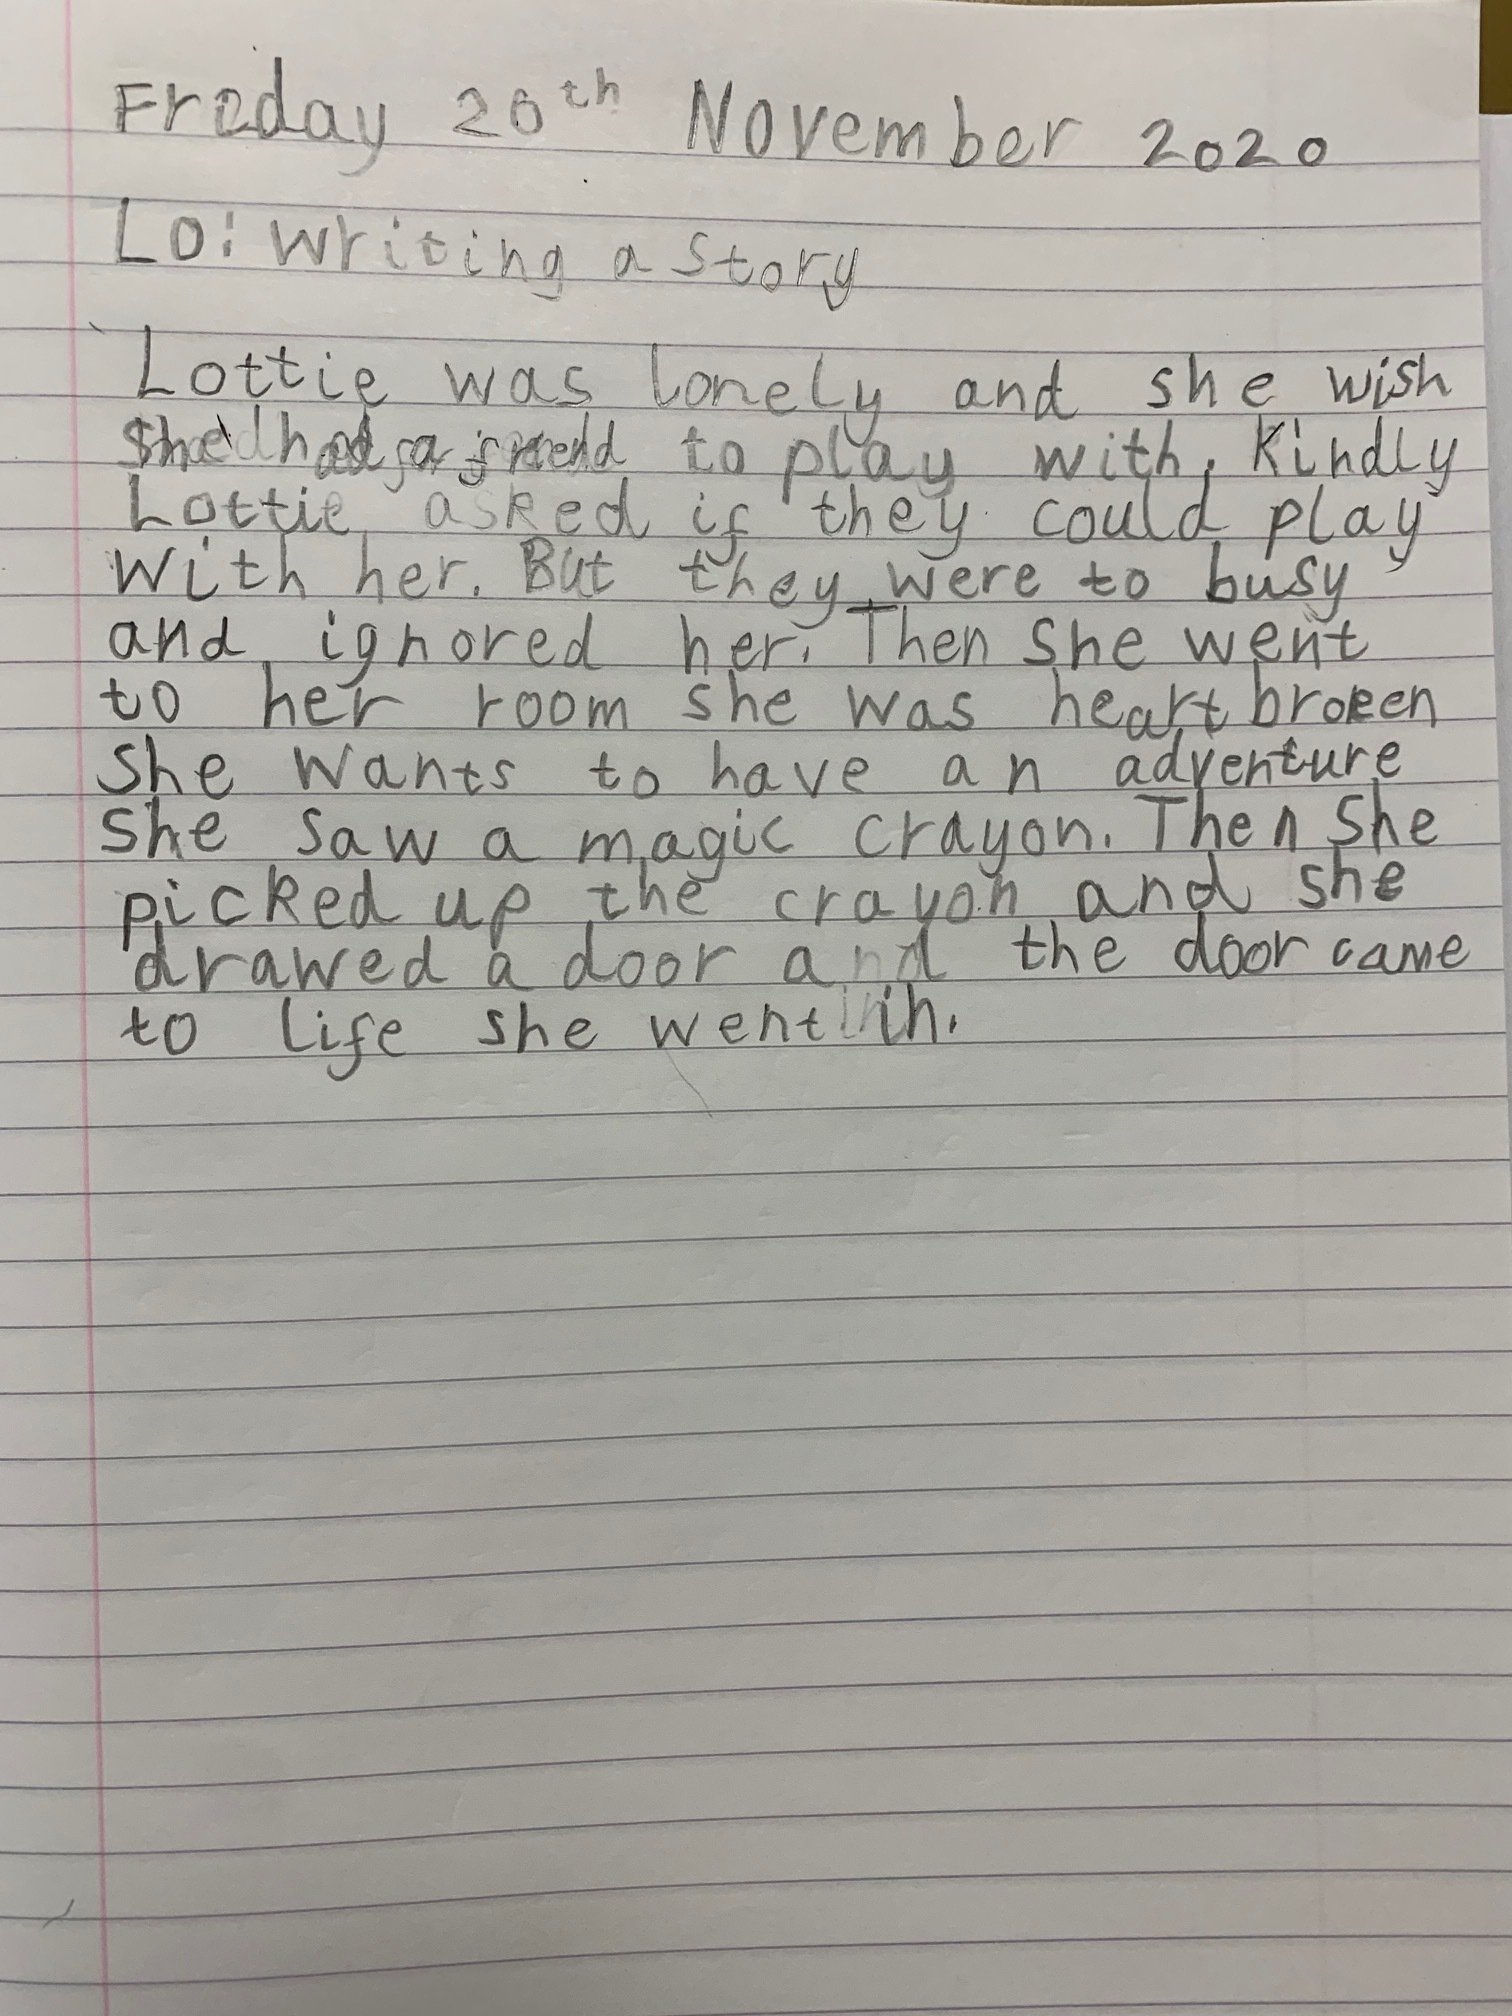 Friday 20th November 2020
Lo: writing a story
Lottie was lonely and she wish
she had a friend to play with. Kindly
Lottie asked if they could play
with her. But they were to busy
and ignored her. Then she went
to her room she was heart broken
she wants to have an adventure
she saw a magic crayon. Then she
picked up the crayon and she
drawed a door and the door came
to life she went in.